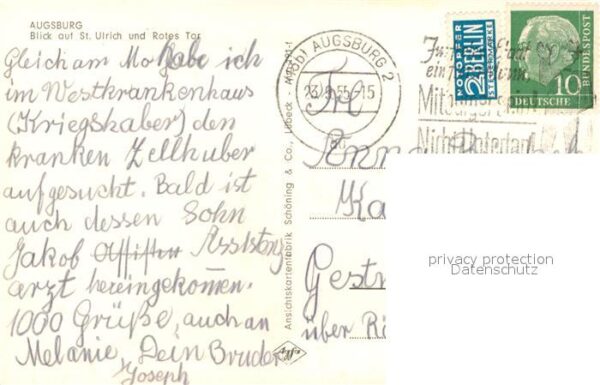 AUGSBURG
Blick auf St. Ulrich und Rotes Tor
Gleich am Mo habe ich
im Westkrankenhaus
(Kriegshaber) den
kranken Zellhuber
aufgesucht. Bald ist
auch dessen Sohn
Jakob Assistenz
arzt hereingekommen.
1000 Grüße, auch an
Melanie, Dein Bruder
Joseph
Ansichtskartenfabrik Schöning & Co., Lübeck
Agfa
AUGSBURG 2
55-15
NOTOPFER
2 BERLIN
STEUERMARKE
DEUTSCHE
BUNDESPOST
10
Frl
Ka
über
privacy protection
Datenschutz